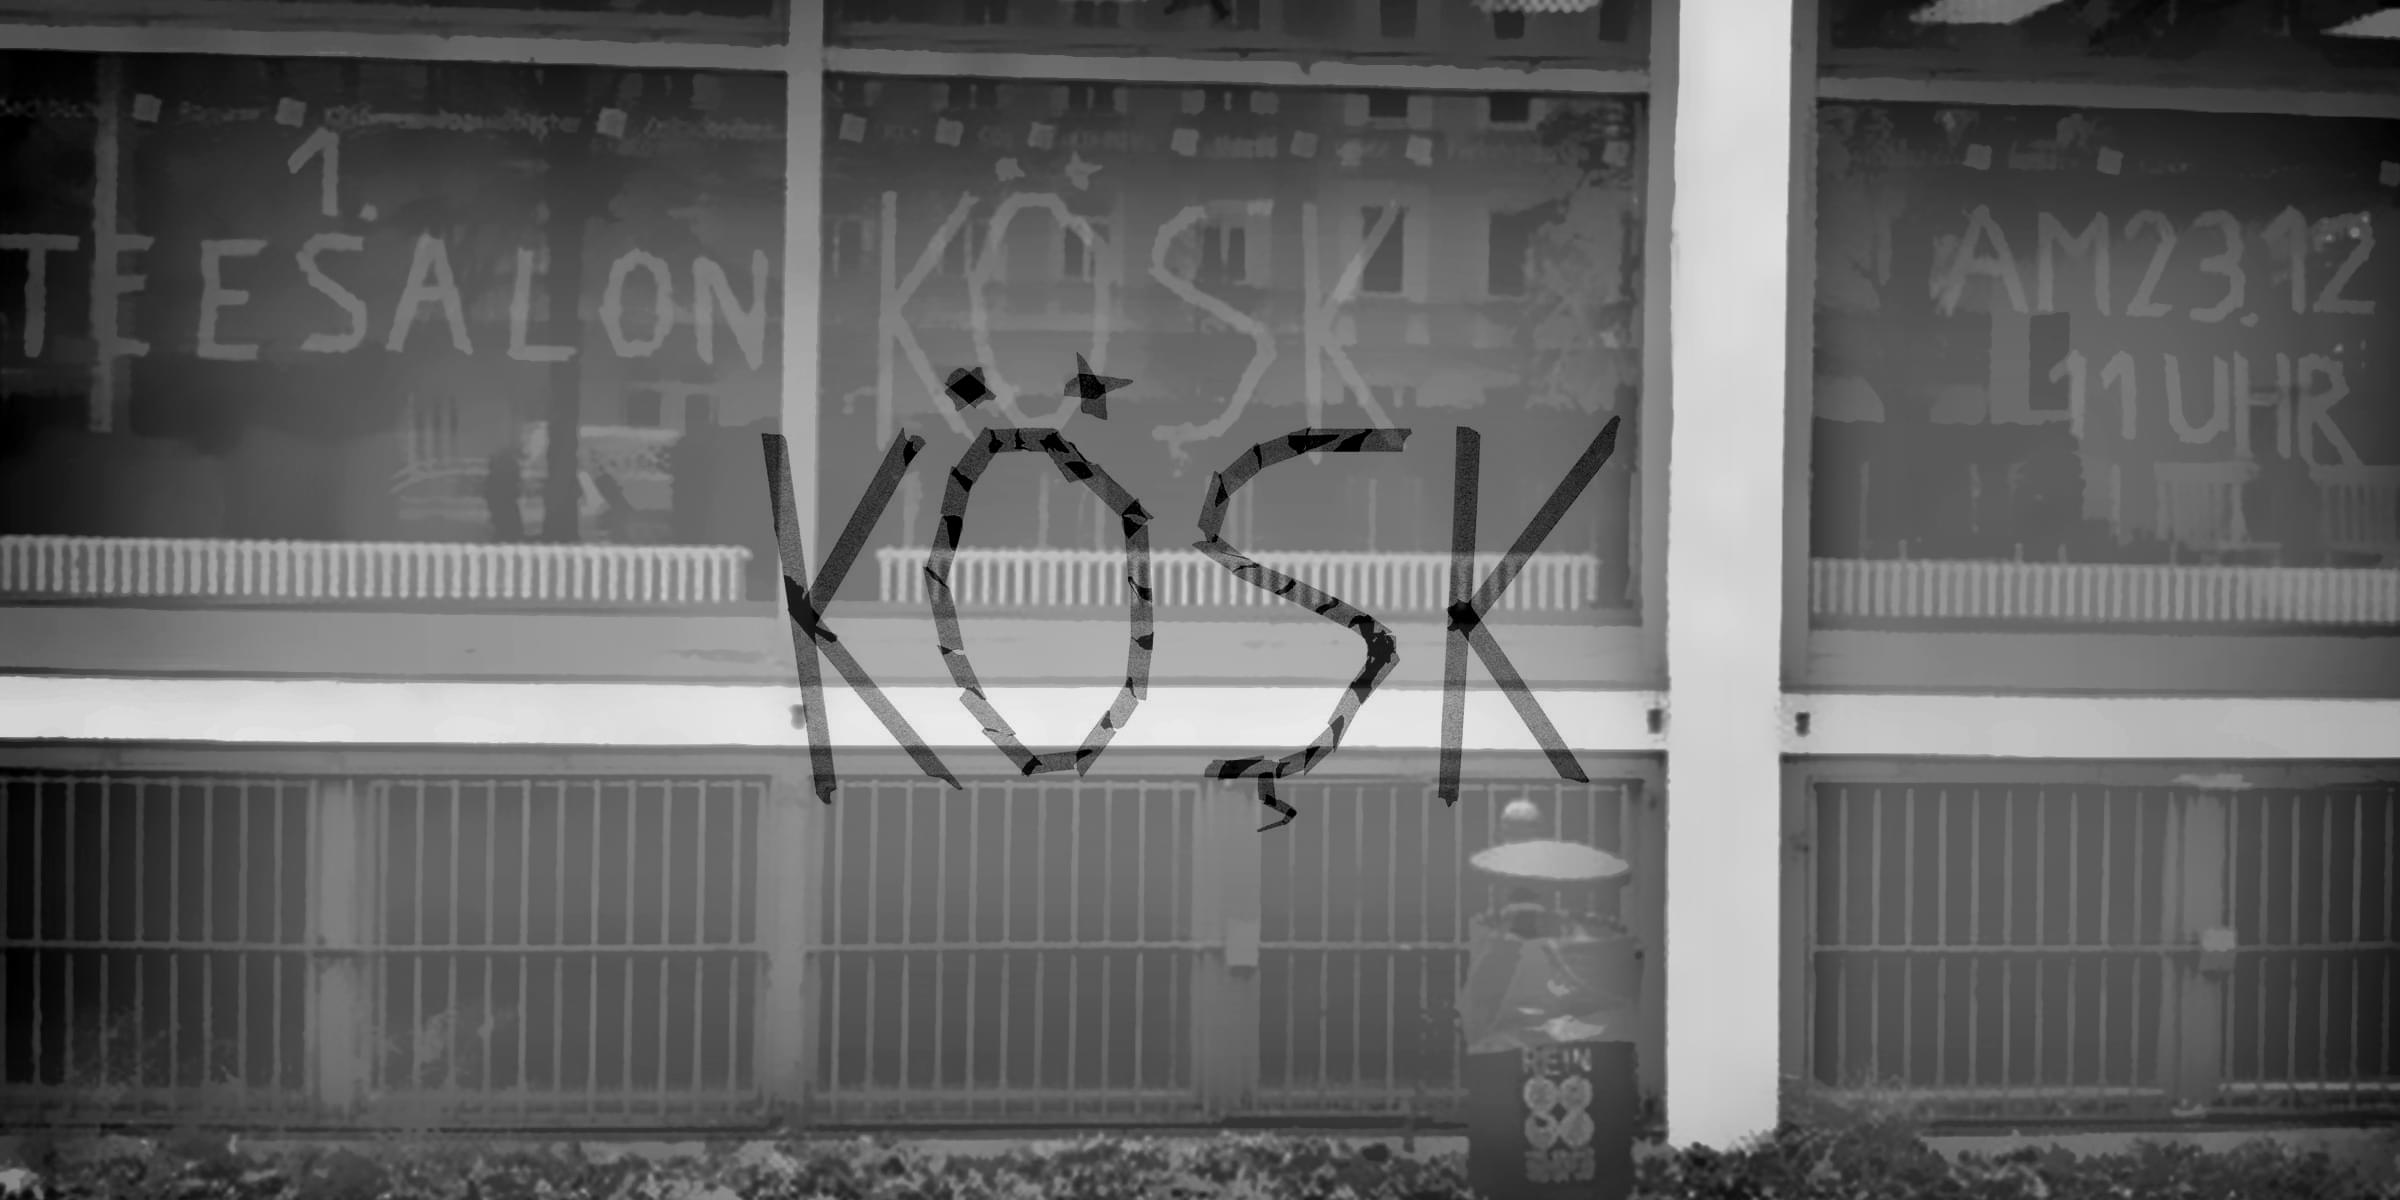 1.
TEESALON
KÖŞK
AM 23.12
11 UHR
KÖŞK
REIN